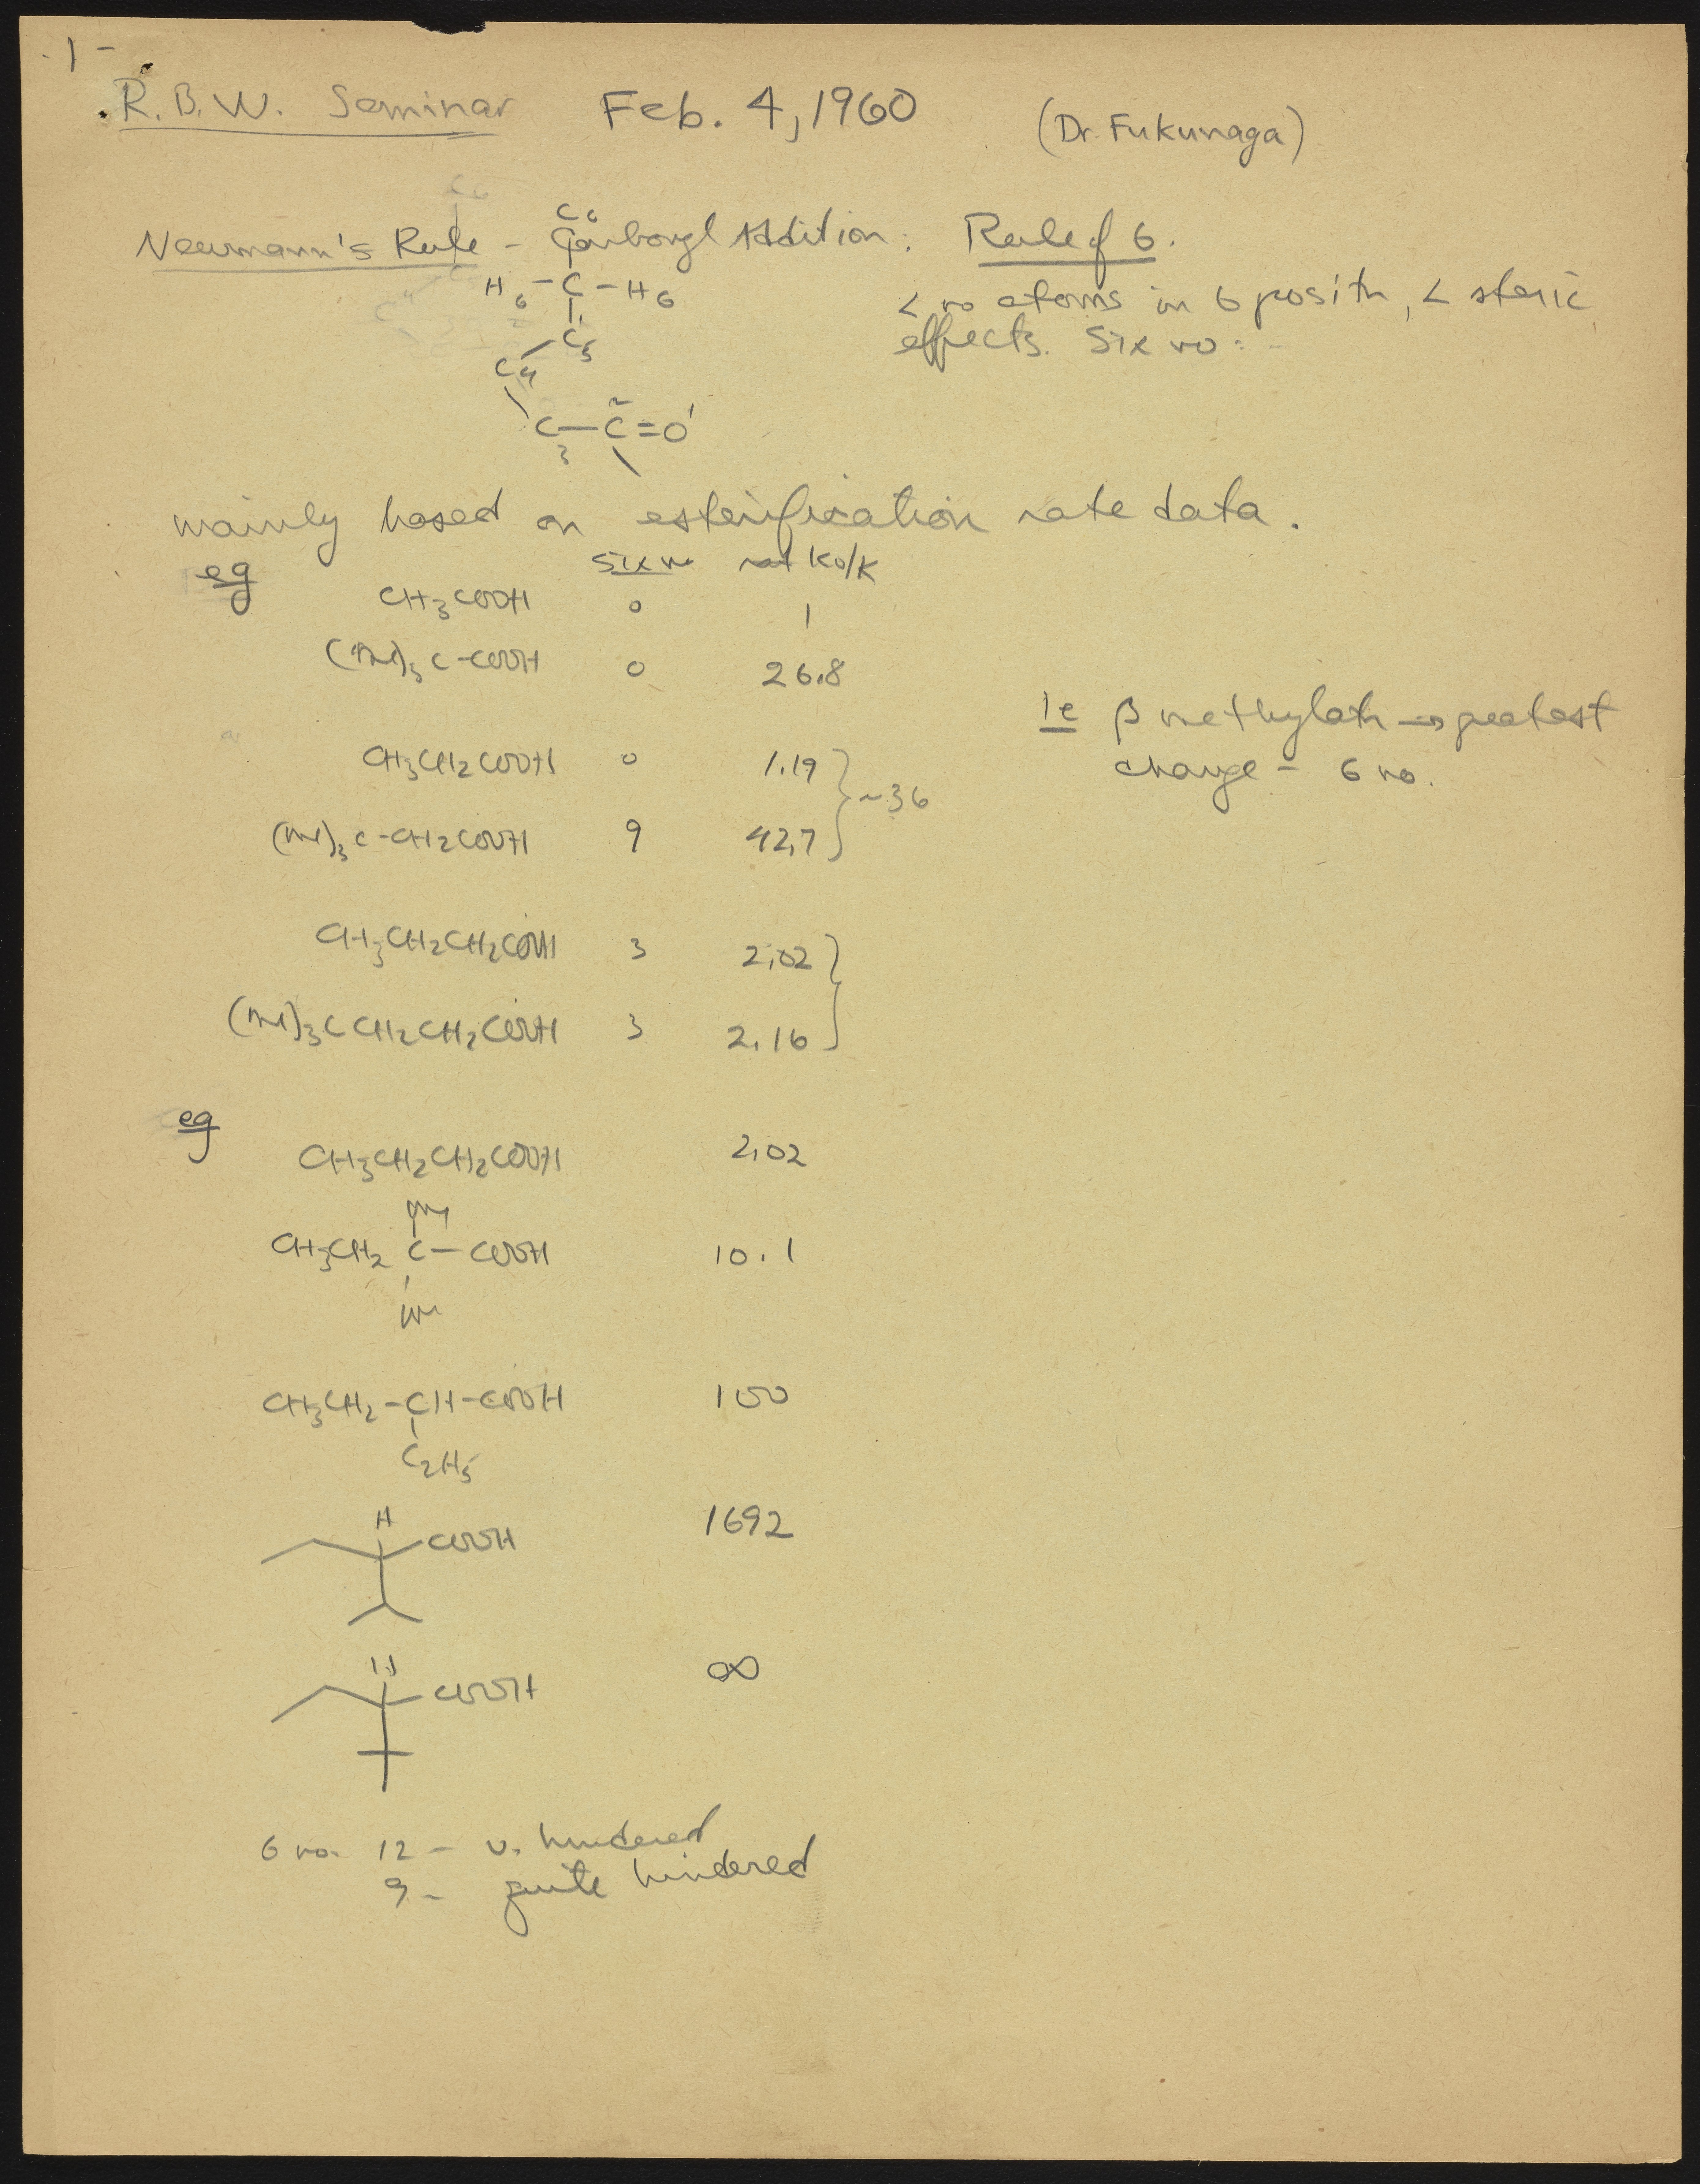 -1-
R.B.W. Seminar Feb. 4, 1960 (Dr. Fukunaga)
Newmann's Rule - Carbonyl Addition. Rule of 6.
C6
H6-C-H6
C5
C4
C3-C2=O1
< no atoms in 6 positn, < steric
effects. Six no:
mainly based on esterification rate data.
eg six no Ko/K
CH3COOH 0 1
(Me)3C-COOH 0 26.8
CH3CH2COOH 0 1.19
(Me)3C-CH2COOH 9 42.7
~36
CH3CH2CH2COOH 3 2.02
(Me)3CCH2CH2COOH 3 2.16
ie β methylatn → greatest
change - 6 no.
eg
CH3CH2CH2COOH 2.02
Me
CH3CH2C-COOH 10.1
Me
CH3CH2-CH-COOH 100
C2H5
H
COOH 1692
H
COOH ∞
6 no. 12 - v. hindered
9 - quite hindered